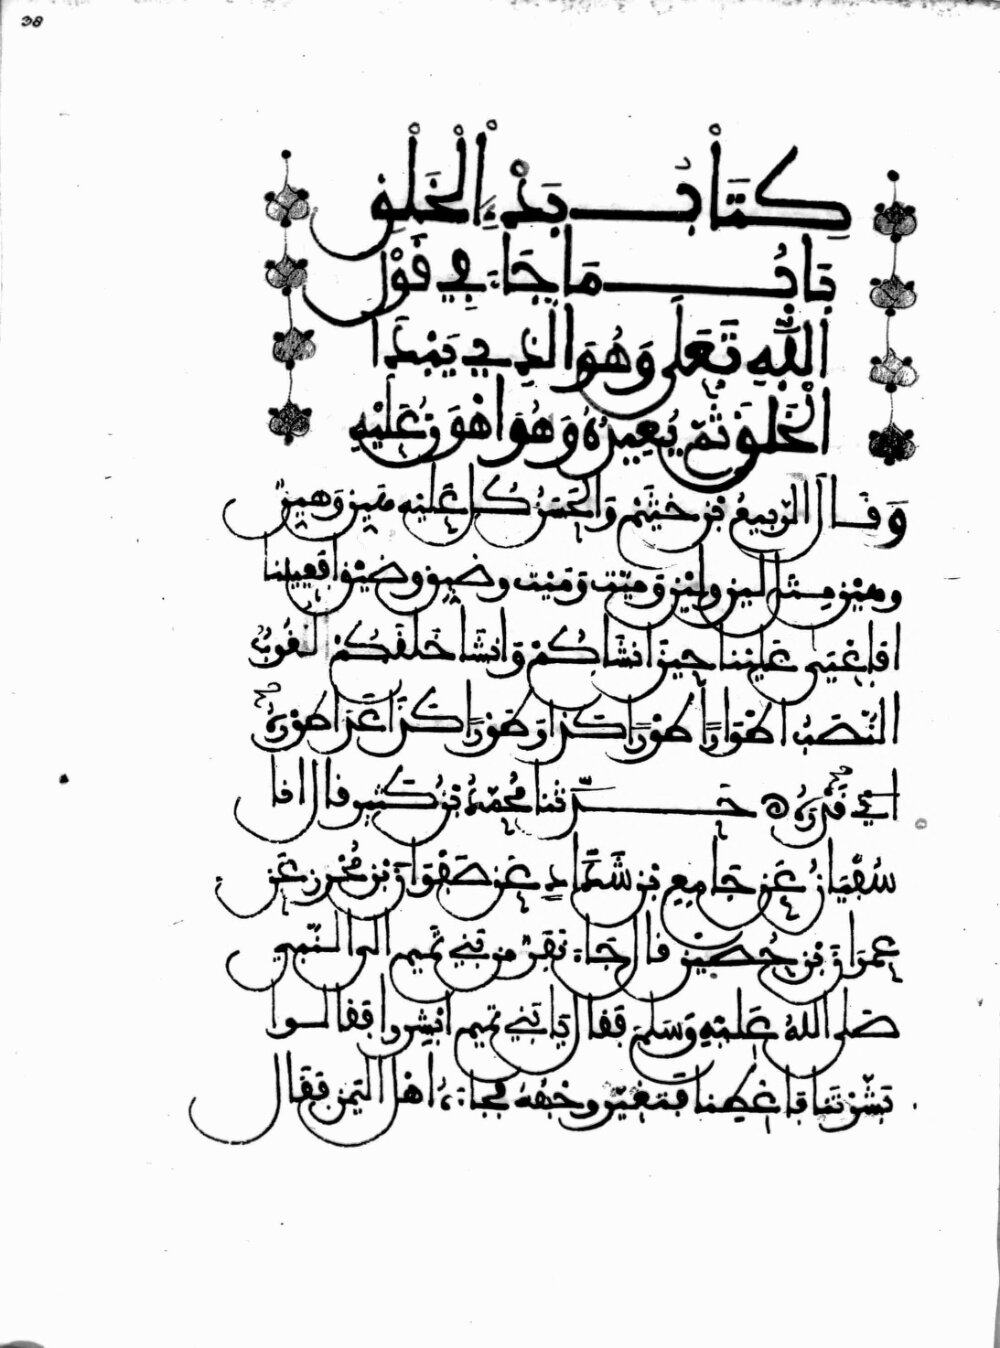 38
كِتَابُ بَدْءِ الْخَلْقِ
بَابُ مَا جَاءَ فِي قَوْلِ
اللَّهِ تَعَلَى وَهُوَ الَّذِي يَبْدَأُ
الْخَلْقَ ثُمَّ يُعِيدُهُ وَهُوَ أَهْوَنُ عَلَيْهِ
وَقَالَ الرَّبِيعُ بْنُ خُثَيْمٍ وَالْحَسَنُ كُلٌّ عَلَيْهِ هَيِّنٌ وَهَيْنٌ
وهَيِّنٌ مِثْلُ لَيْنٍ ولَيِّنٍ وَمَيْتٍ وَمَيِّتٍ وضَيْقٍ وضَيِّقٍ أفعيينا
أفأعْيَى عَلَيْنَا حِينَ أنْشَأكُمْ وَأنْشَأ خَلْقَكُمْ لُغُوبٌ
النَّصَبُ أطْوَارًا طَوْرًا كَذَا وَطَوْرًا كَذَا عَدَا طَوْرَهُ
أيْ قَدْرَهُ حَدَّثنا مُحمَّدُ بْنُ كَثِيرٍ قالَ أنا
سُفْيَانُ عَن جَامِعِ بنِ شَدَّادٍ عَن صَفْوَانَ بْنِ مُحْرِزٍ عَن
عِمْرَانَ بْنِ حُصَيْنٍ قالَ جَاءَ نَفَرٌ مِن بَنِي تَمِيمٍ الى النَّبِي
صَلى اللهُ عَلَيْهِ وَسَلَّمَ فَقالَ يَا بَنِي تمِيمٍ أبْشِروا فَقالوا
بَشَّرْتَنَا فَأعْطِنا فَتَغَيَّرَ وجْهُهُ فجاءَهُ أهْلُ اليَمَنِ فَقَالَ